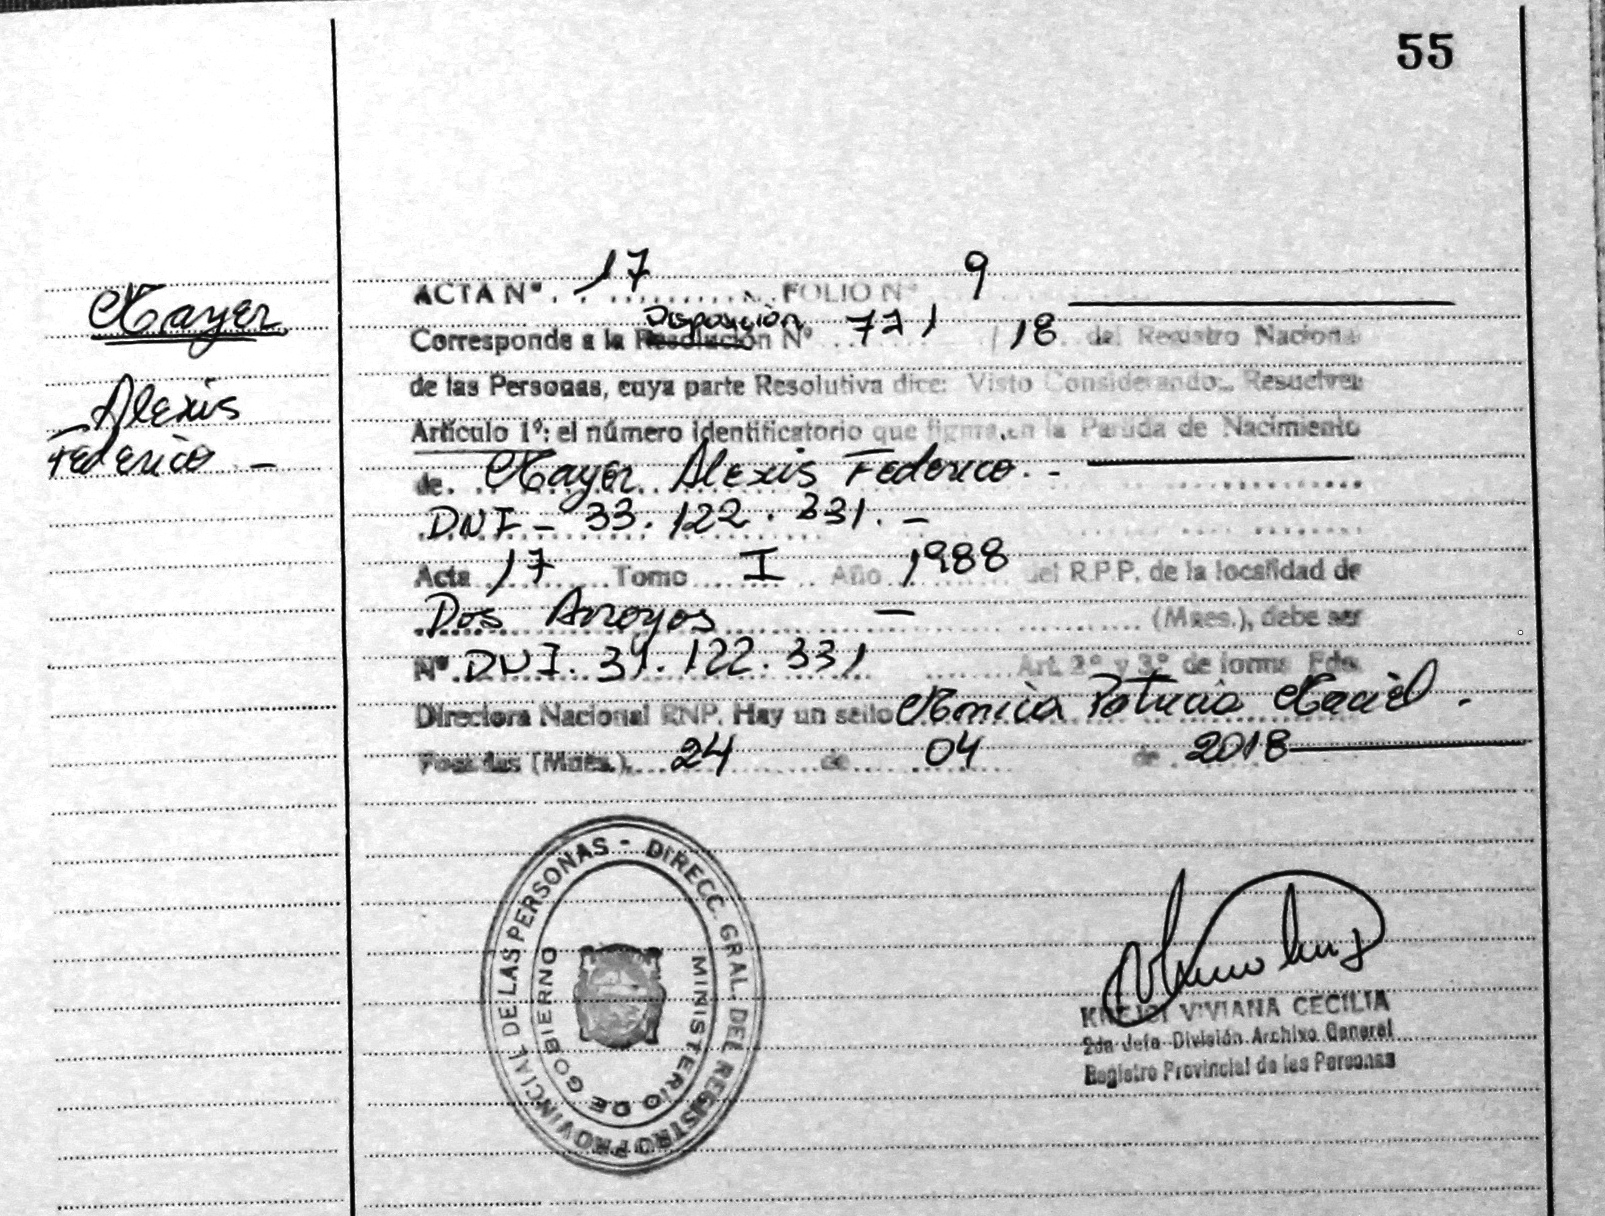 55
Mayer
Alexis
Federico -
ACTA Nº 17 FOLIO Nº 9
Disposición
Corresponde a la Resolución Nº 721 / 18 del Registro Naciona
de las Personas, cuya parte Resolutiva dice: Visto Considerando:. Resuelve:
Artículo 1º: el número identificatorio que figura en la Partida de Nacimiento
de Mayer Alexis Federico. -
DNI - 33.122.331. -
Acta 17 Tomo I Año 1988 del R.P.P. de la localidad de
Dos Arroyos - (Mnes.), debe ser
Nº DNI. 34.122.331 Art. 2º y 3º de forma Fdo.
Directora Nacional RNP. Hay un sello Mónica Patricia Maciel.
Posadas (Mnes.), 24 de 04 de 2018
DIRECC. GRAL. DEL REGISTRO PROVINCIAL DE LAS PERSONAS -
MINISTERIO DE GOBIERNO
VIVIANA CECILIA
2da Jefe División Archivo General
Registro Provincial de las Personas